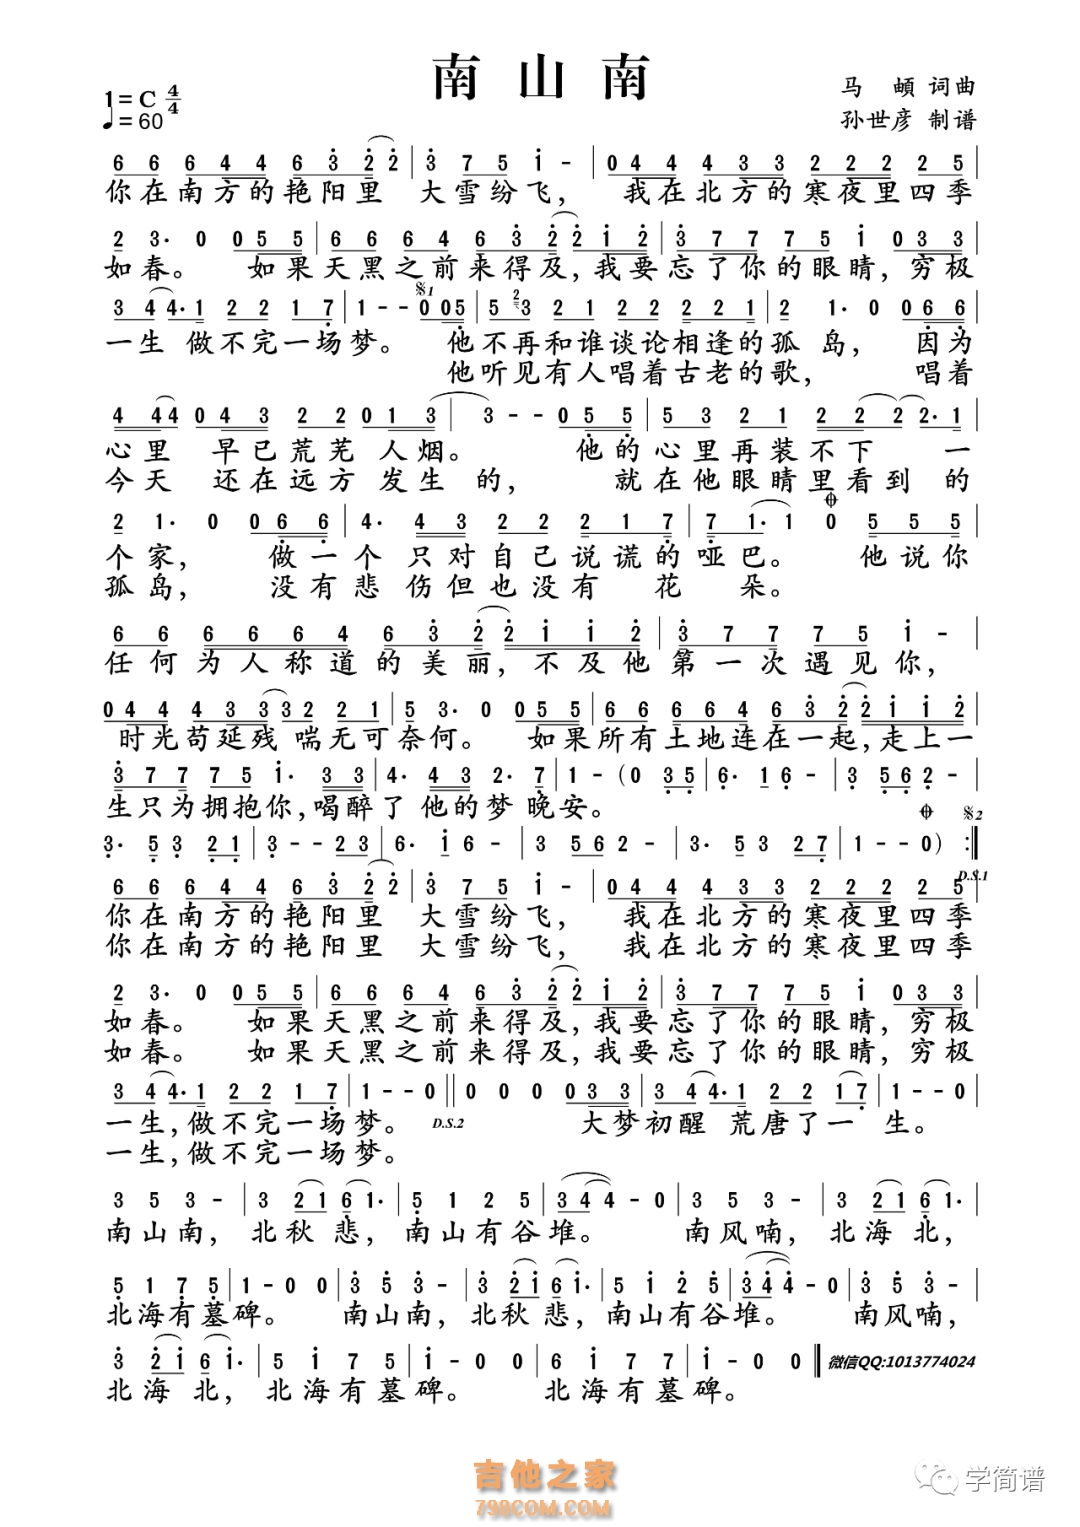 南山南
1=C 4/4
♩=60
马頔 词曲
孙世彦 制谱
6 6 6 4 4 6 3 2 2 | 3 7 5 1 - | 0 4 4 4 3 3 2 2 2 2 5 |
你在南方的艳阳里 大雪纷飞, 我在北方的寒夜里四季
2 3· 0 0 5 5 | 6 6 6 4 6 3 2 2 1 2 | 3 7 7 7 5 1 0 3 3 |
如春。 如果天黑之前来得及,我要忘了你的眼睛,穷极
3 4 4· 1 2 2 1 7 | 1 - - 0 0 5 | 5 2 3 2 1 2 2 2 2 1 | 2 1· 0 0 6 6 |
𝄋1
一生 做不完一场梦。 他不再和谁谈论相逢的孤 岛, 因为
他听见有人唱着古老的歌, 唱着
4 4 4 0 4 3 2 2 0 1 3 | 3 - - 0 5 5 | 5 3 2 1 2 2 2 2· 1 |
心里 早已荒芜 人烟。 他的心里再装不下 一
今天 还在远方 发生 的, 就在他眼睛里看到 的
𝄌
2 1· 0 0 6 6 | 4· 4 3 2 2 2 1 7 | 7 1· 1 0 5 5 5 |
个家, 做一个 只对自己说谎的哑巴。 他说你
孤岛, 没有悲 伤但也没有 花 朵。
6 6 6 6 6 4 6 3 2 2 1 1 2 | 3 7 7 7 5 1 - |
任何为人称道的美丽, 不及他第一次遇见你,
0 4 4 4 3 3 3 2 2 1 | 5 3· 0 0 5 5 | 6 6 6 6 4 6 3 2 2 1 1 2 |
时光苟延残 喘无可奈何。 如果所有土地连在一起,走上一
3 7 7 7 5 1· 3 3 | 4· 4 3 2· 7 | 1 - (0 3 5 | 6· 1 6 - | 3 5 6 2 - |
生只为拥抱你,喝醉了 他的梦 晚安。
𝄌 𝄋2
3· 5 3 2 1 | 3 - - 2 3 | 6· 1 6 - | 3 5 6 2 - | 3· 5 3 2 7 | 1 - - 0) :|
D.S.1
6 6 6 4 4 6 3 2 2 | 3 7 5 1 - | 0 4 4 4 3 3 2 2 2 2 5 |
你在南方的艳阳里 大雪纷飞, 我在北方的寒夜里四季
你在南方的艳阳里 大雪纷飞, 我在北方的寒夜里四季
2 3· 0 0 5 5 | 6 6 6 4 6 3 2 2 1 2 | 3 7 7 7 5 1 0 3 3 |
如春。 如果天黑之前来得及,我要忘了你的眼睛,穷极
如春。 如果天黑之前来得及,我要忘了你的眼睛,穷极
3 4 4· 1 2 2 1 7 | 1 - - 0 || 0 0 0 0 3 3 | 3 4 4· 1 2 2 1 7 | 1 - - 0 |
一生,做不完一场梦。 D.S.2 大梦初醒 荒唐了一 生。
一生,做不完一场梦。
3 5 3 - | 3 2 1 6 1· | 5 1 2 5 | 3 4 4 - 0 | 3 5 3 - | 3 2 1 6 1· |
南山南, 北秋悲, 南山有谷堆。 南风喃, 北海北,
5 1 7 5 | 1 - 0 0 | 3 5 3 - | 3 2 1 6 1· | 5 1 2 5 | 3 4 4 - 0 | 3 5 3 - |
北海有墓碑。 南山南, 北秋悲, 南山有谷堆。 南风喃,
3 2 1 6 1· | 5 1 7 5 | 1 0 0 0 | 6 1 7 7 | 1 - 0 0 ‖ 微信QQ:1013774024
北海 北, 北海有墓碑。 北海有墓碑。
吉他之家
798COM.COM
学简谱